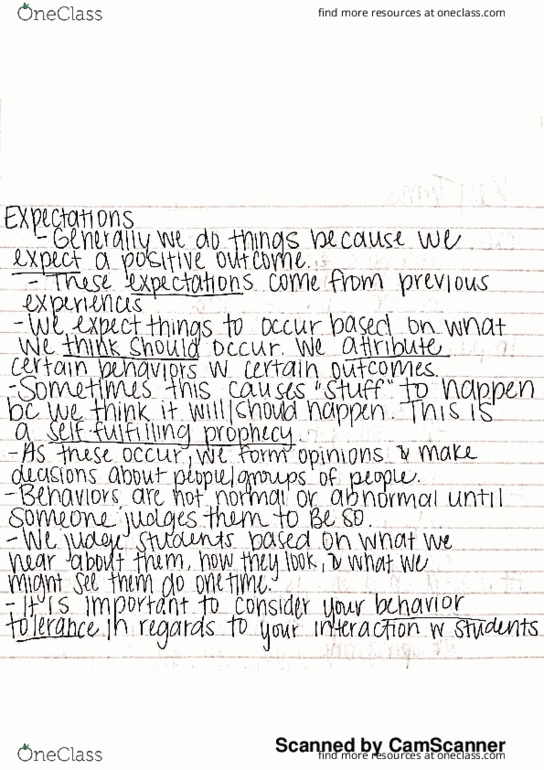 OneClass
find more resources at oneclass.com
Expectations
- Generally we do things because we
expect a positive outcome.
- These expectations come from previous
experiences
- We expect things to occur based on what
we think should occur. We attribute
certain behaviors w certain outcomes.
- Sometimes this causes "stuff" to happen
bc we think it will/should happen. This is
a self fulfilling prophecy.
- As these occur, we form opinions & make
decisions about people/groups of people.
- Behaviors are not normal or abnormal until
someone judges them to Be so.
- We judge students based on what we
hear about them, how they look, & what we
might see them do one time.
- It is important to consider your behavior
tolerance in regards to your interaction w students
Scanned by CamScanner
OneClass
find more resources at oneclass.com